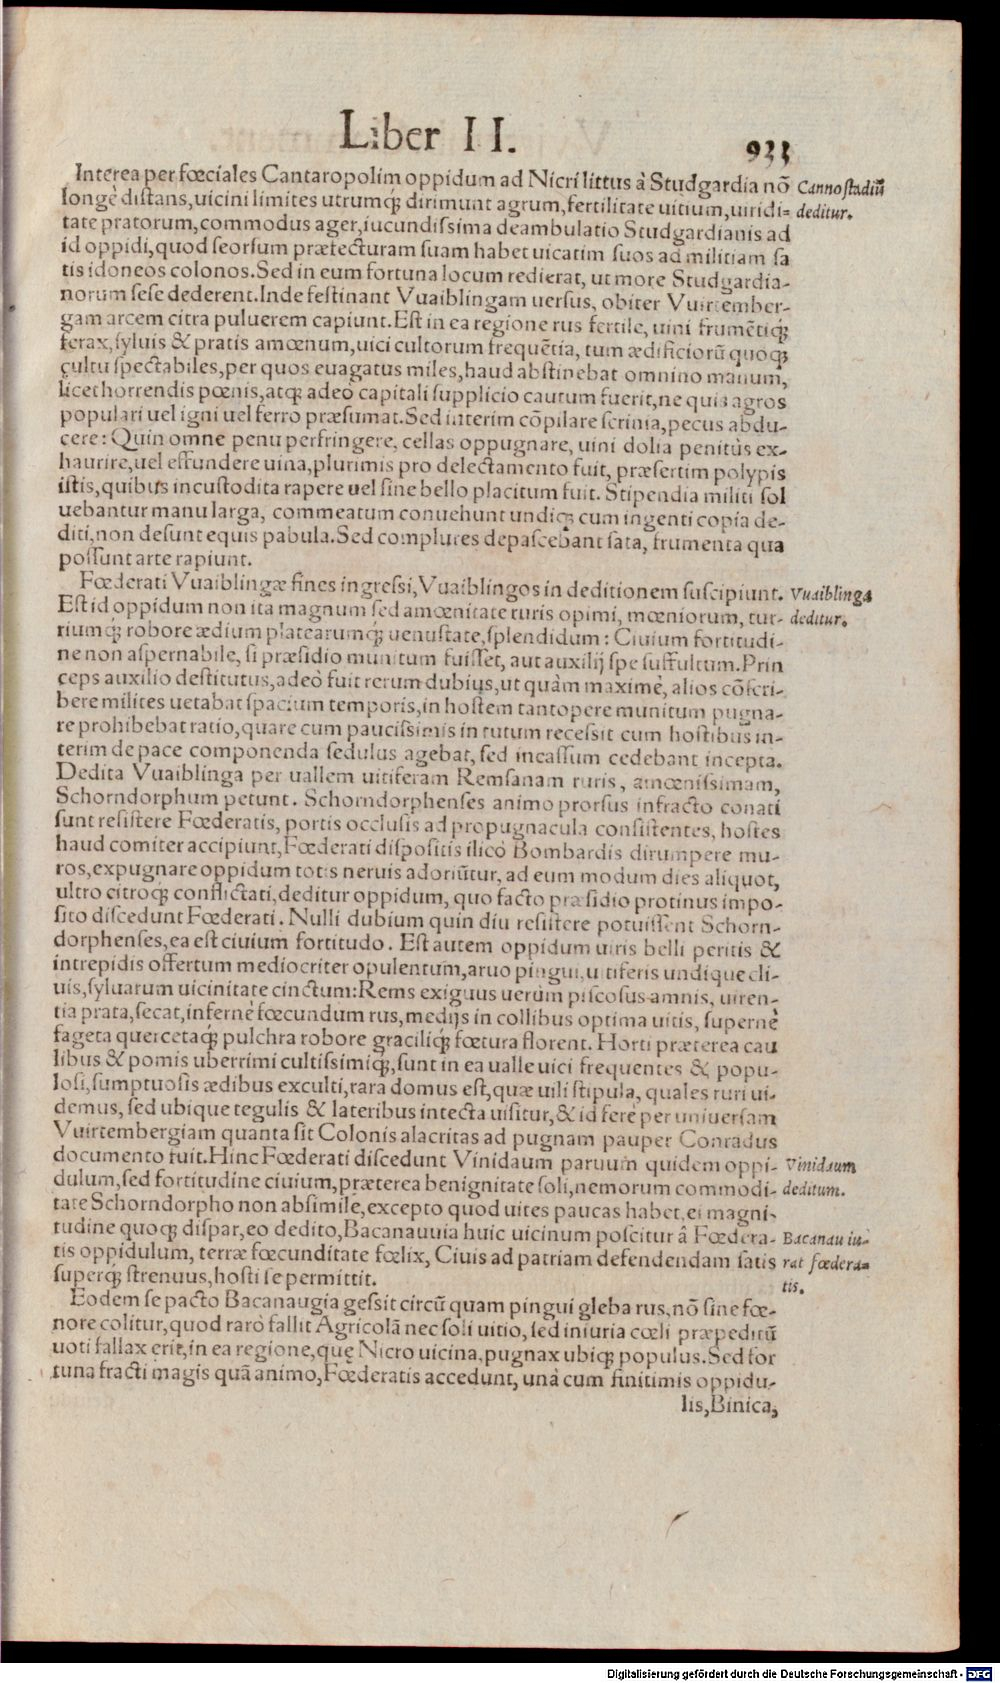 Liber II.
933
Interea per fœciales Cantaropolim oppidum ad Nicri littus à Studgardia nō
Cannostadiũ
longè distans, uicini limites utrumq; dirimunt agrum, fertilitate uitium, uiridi=
deditur.
tate pratorum, commodus ager, iucundissima deambulatio Studgardianis ad
id oppidi, quod seorsum præfecturam suam habet uicatim suos ad militiam sa
tis idoneos colonos. Sed in eum fortuna locum redierat, ut more Studgardia-
norum sese dederent. Inde festinant Vuaiblingam uersus, obiter Vuirtember-
gam arcem citra puluerem capiunt. Est in ea regione rus fertile, uini frumētiq;
ferax, syluis & pratis amœnum, uici cultorum frequētia, tum ædificiorū quoq;
cultu spectabiles, per quos euagatus miles, haud abstinebat omnino manum,
licet horrendis pœnis, atq; adeò capitali supplicio cautum fuerit, ne quis agros
populari uel igni uel ferro præsumat. Sed interim cōpilare scrinia, pecus abdu-
cere: Quin omne penu perfringere, cellas oppugnare, uini dolia penitùs ex-
haurire, uel effundere uina, plurimis pro delectamento fuit, præsertim polypis
istis, quibus incustodita rapere uel sine bello placitum fuit. Stipendia militi sol
uebantur manu larga, commeatum conuehunt undiq; cum ingenti copia de-
diti, non desunt equis pabula. Sed complures depascebant sata, frumenta qua
possunt arte rapiunt.
Fœderati Vuaiblingæ fines ingressi, Vuaiblingos in deditionem suscipiunt.
Vuaiblinga
Est id oppidum non ita magnum sed amœnitate ruris opimi, mœniorum, tur-
deditur.
riumq; robore ædium platearumq; uenustate, splendidum: Ciuium fortitudi-
ne non aspernabile, si præsidio munitum fuisset, aut auxilij spe suffultum. Prin
ceps auxilio destitutus, adeò fuit rerum dubius, ut quàm maximè, alios cōscri-
bere milites uetabat spacium temporis, in hostem tantopere munitum pugna-
re prohibebat ratio, quare cum paucissimis in tutum recessit cum hostibus in-
terim de pace componenda sedulus agebat, sed incassum cedebant incepta.
Dedita Vuaiblinga per uallem uitiferam Remsanam ruris, amœnissimam,
Schorndorphum petunt. Schorndorphenses animo prorsus infracto conati
sunt resistere Fœderatis, portis occlusis ad propugnacula consistentes, hostes
haud comiter accipiunt, Fœderati dispositis ilicò Bombardis dirumpere mu-
ros, expugnare oppidum totis neruis adoriūtur, ad eum modum dies aliquot,
ultro citroq; conflictati, deditur oppidum, quo facto præsidio protinus impo-
sito discedunt Fœderati. Nulli dubium quin diu resistere potuissent Schorn-
dorphenses, ea est ciuium fortitudo. Est autem oppidum uiris belli peritis &
intrepidis offertum mediocriter opulentum, aruo pingui, uitiferis undique cli-
uis, syluarum uicinitate cinctum: Rems exiguus uerùm piscosus amnis, uiren-
tia prata, secat, infernè fœcundum rus, medijs in collibus optima uitis, supernè
fageta quercetaq; pulchra robore graciliq; fœtura florent. Horti præterea cau
libus & pomis uberrimi cultissimiq;, sunt in ea ualle uici frequentes & popu-
losi, sumptuosis ædibus exculti, rara domus est, quæ uili stipula, quales ruri ui-
demus, sed ubique tegulis & lateribus intecta uisitur, & id ferè per uniuersam
Vuirtembergiam quanta sit Colonis alacritas ad pugnam pauper Conradus
documento fuit. Hinc Fœderati discedunt Vinidaum paruum quidem oppi-
Vinidaum
dulum, sed fortitudine ciuium, præterea benignitate soli, nemorum commodi-
deditum.
tate Schorndorpho non absimile, excepto quod uites paucas habet, ei magni-
tudine quoq; dispar, eo dedito, Bacanauuia huic uicinum poscitur â Fœdera-
Bacanau iu-
tis oppidulum, terræ fœcunditate fœlix, Ciuis ad patriam defendendam satis
rat fœdera=
superq; strenuus, hosti se permittit.
tis.
Eodem se pacto Bacanaugia gessit circū quam pingui gleba rus, nō sine fœ-
nore colitur, quod rarò fallit Agricolā nec soli uitio, sed iniuria cœli præpeditū
uoti fallax erit, in ea regione, quę Nicro uicina, pugnax ubiq; populus. Sed for
tuna fracti magis quā animo, Fœderatis accedunt, unà cum finitimis oppidu-
lis, Binica,
Digitalisierung gefördert durch die Deutsche Forschungsgemeinschaft - DFG